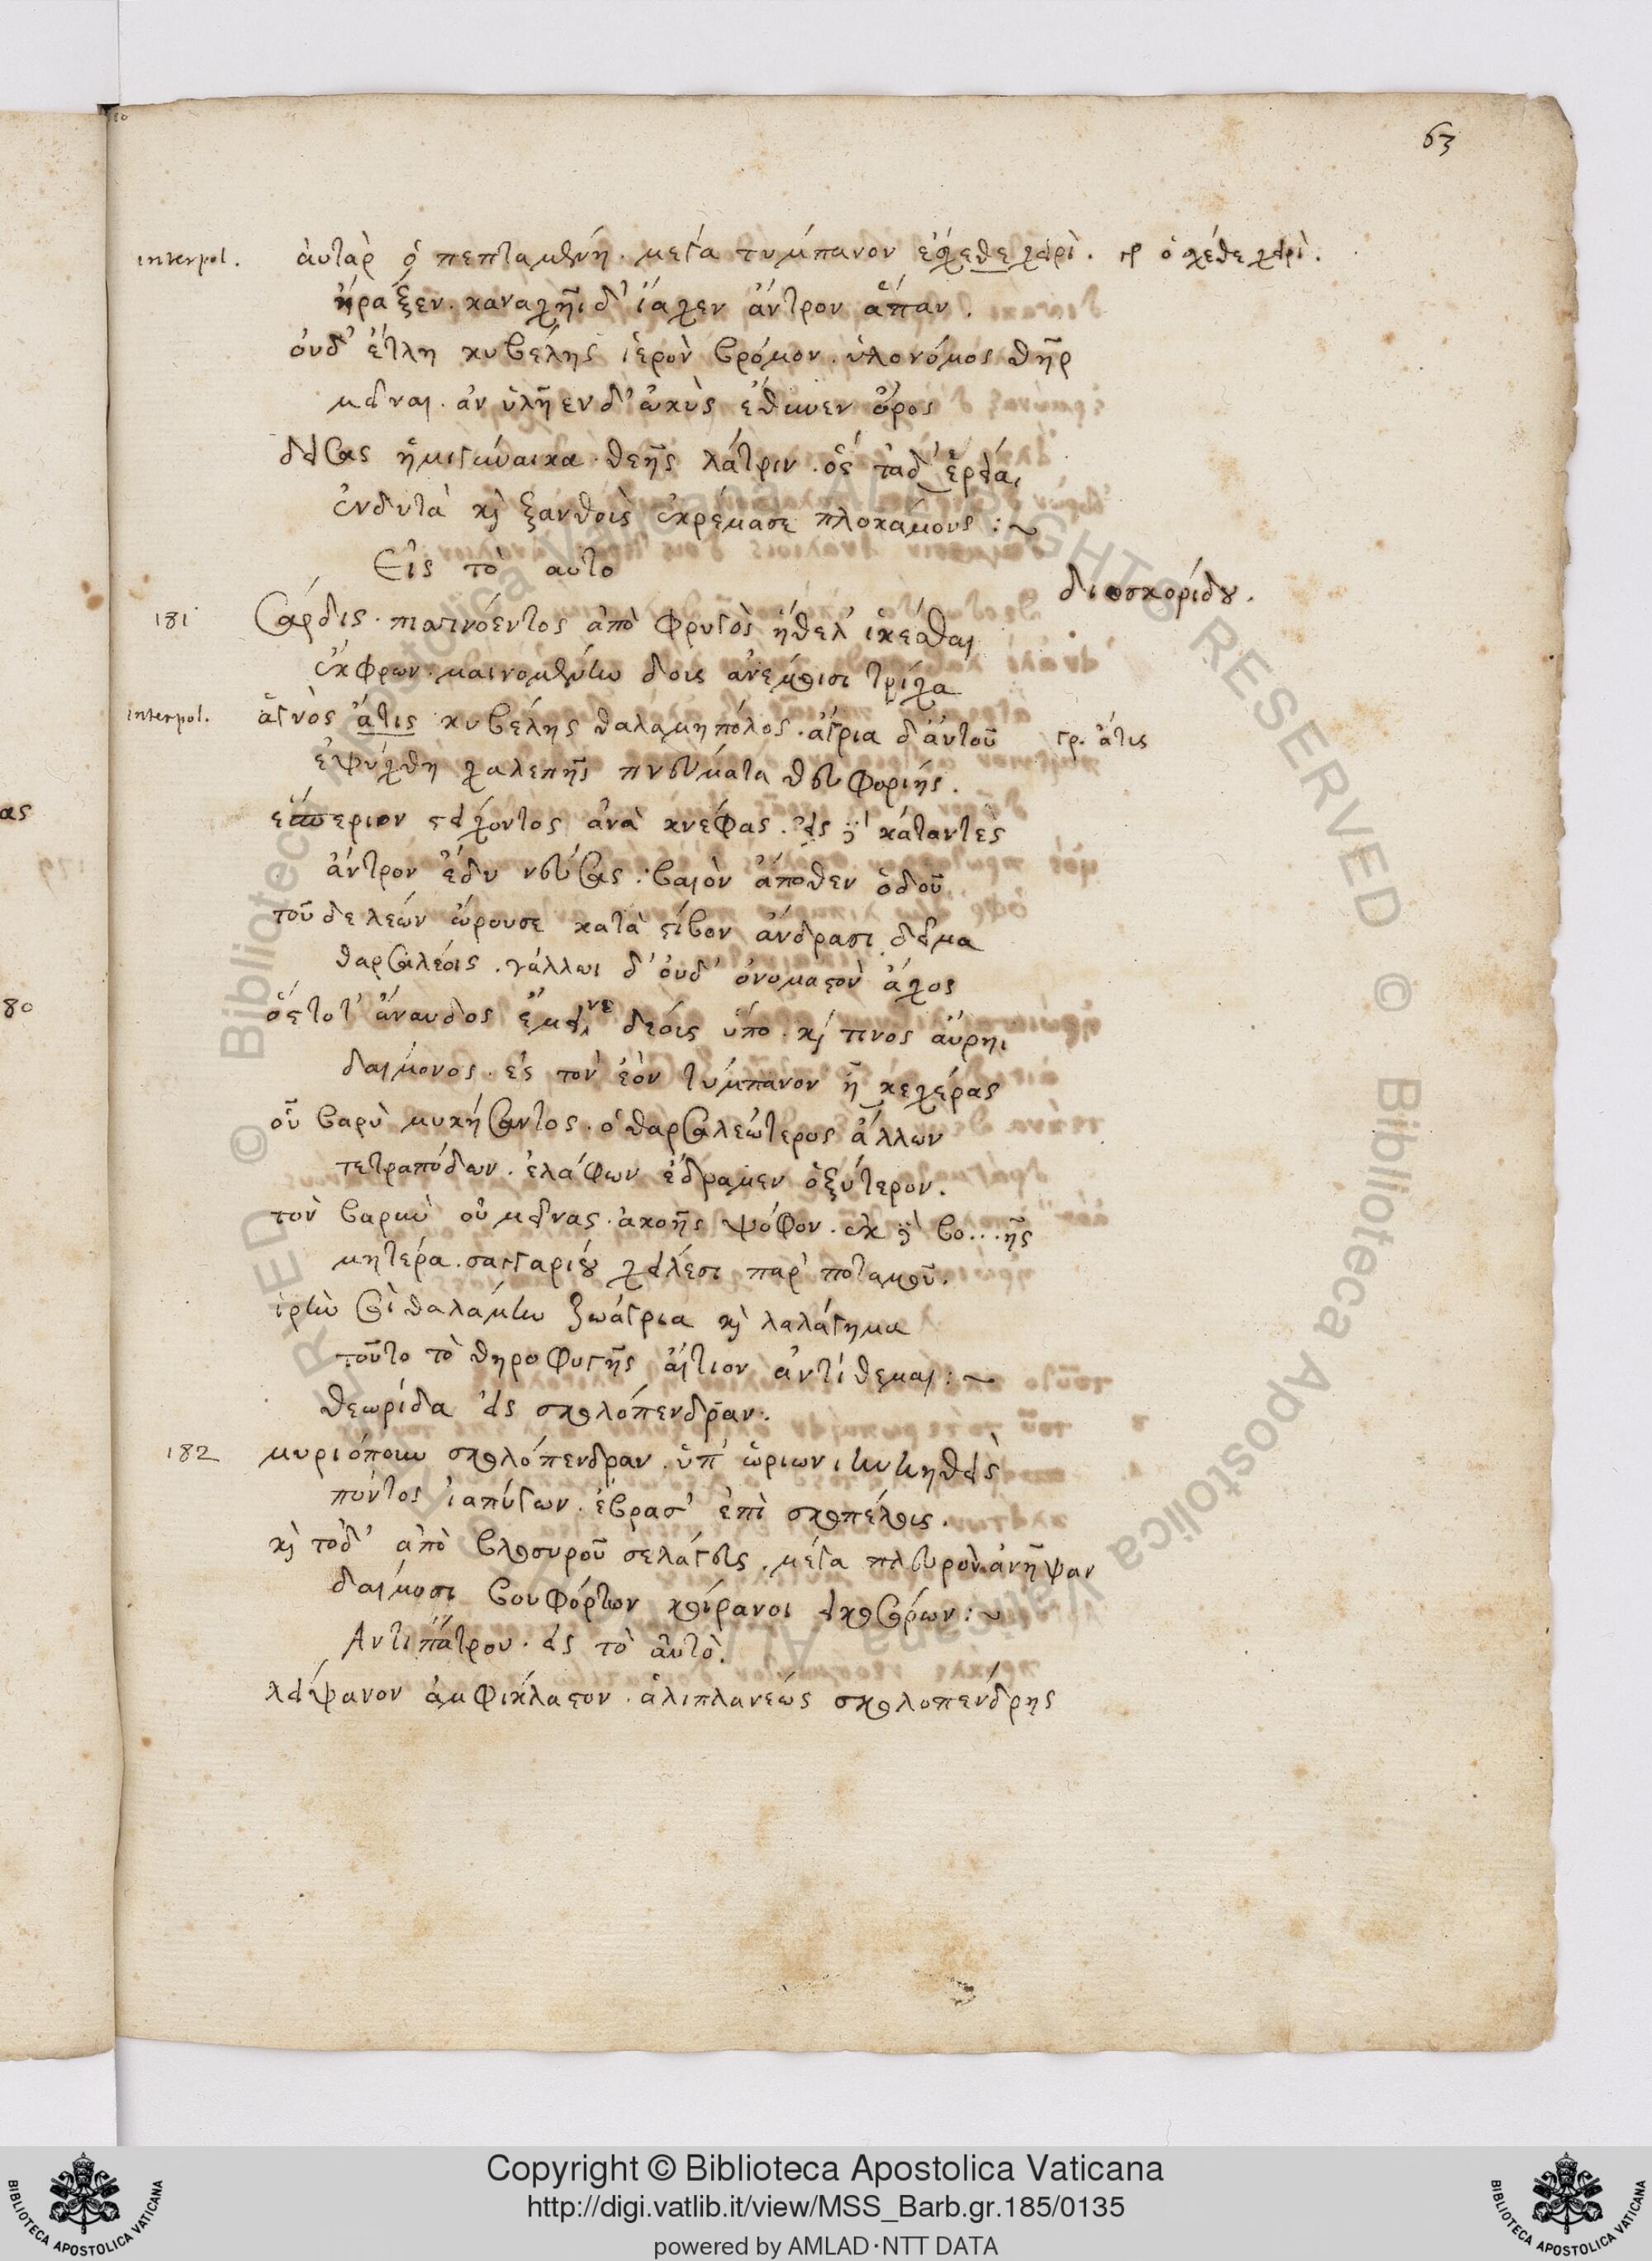 63
interpol. ἀυταρ ὁ πεπταμένη. μεγα τυμπανον ἐσχεθε χειρὶ. γρ ὁ σχέθε χειρὶ.
ἤραξεν. καναχῆι δ' ἴαχεν ἄντρον ἅπαν.
ὀυδ' ἔτλη κυβέλης ἱερὸν βρόμον. ὑλονόμος θὴρ
μεῖναι. ἀν ὑλῆεν δ' ὠκὺς ἔθυνεν ὄρος
δείσας ἡμιγύναικα θεῆς λάτριν. ὅς τάδ' ἑρεία,
ἐνδυτὰ καὶ ξανθοὺς ἐκρέμασε πλοκάμους :~
Εἰς τὸ αυτο
διοσκορίδου.
181 Σάρδις πισινόεντος ἀπὸ φρυγὸς ἤθελ' ἱκέσθαι
ἔκφρων. μαινομένην δοις ἀνέμοισι τρίχα
interpol. ἁγνὸς ἄτις κυβέλης θαλαμηπόλος. ἄγρια δ' ἀυτοῦ γρ. ἄτις
ἐψύχθη χαλεπῆς πνεύματα θευφορίης.
ἑσπεριον στείχοντος ἀνὰ κνέφας. εἰς δὲ κάταντες
ἄντρον ἔδυ νεύσας. βαιὸν ἄποθεν ὁδοῦ
τοῦ δε λεών ὤρουσε κατὰ στίβον ἀνδρασι δεῖμα
θαρσαλέοις. γάλλωι δ' ὀυδ' ὀνομαστὸν ἄχος
ὅς τοτ' ἄναυδος ἔμεινε δέοις ὑπο. καί τινος ἄυρηι
δαίμονος. ἐς τον ἑὸν τύμπανον ἧ κε χέρας
οὗ βαρὺ μυκήσαντος. ὁ θαρσαλεώτερος ἄλλων
τετραπόδων. ἐλάφων ἔδραμεν ὀξύτερον.
τὸν βαρυὺ οὐ μείνας. ἀκοῆς ψόφον. ἐκ δὲ βο...ῆς
μητέρα. σαγγαρίου χείλεσι παρ' ποταμοῦ.
ἱρὴν σοὶ θαλάμην ζωάγρια καὶ λαλάγημα
τοῦτο τὸ θηροφυγῆς ἄιτιον ἀντίθεμαι :~
θεωρίδα εἰς σκολόπενδραν.
182 μυριόπουν σκολόπενδραν. ὑπ' ὠριωνι κυκηθεὶς
πόντος ἰαπύγων. ἔβρασ' ἐπὶ σκοπέλοις.
καὶ τόδ' ἀπὸ βλοσυροῦ σελάγευς. μέγα πλευρὸν ἀνῆψαν
δαίμοσι βουφόρτων κοίρανοι εἰκοσόρων :~
Αντιπάτρου. εἰς τὸ ἀυτὸ.
λείψανον ἀμφικλαστον. ἁλιπλανέως σκολοπένδρης
ας
80
Copyright © Biblioteca Apostolica Vaticana
http://digi.vatlib.it/view/MSS_Barb.gr.185/0135
powered by AMLAD·NTT DATA
BIBLIOTECA APOSTOLICA VATICANA
BIBLIOTECA APOSTOLICA VATICANA